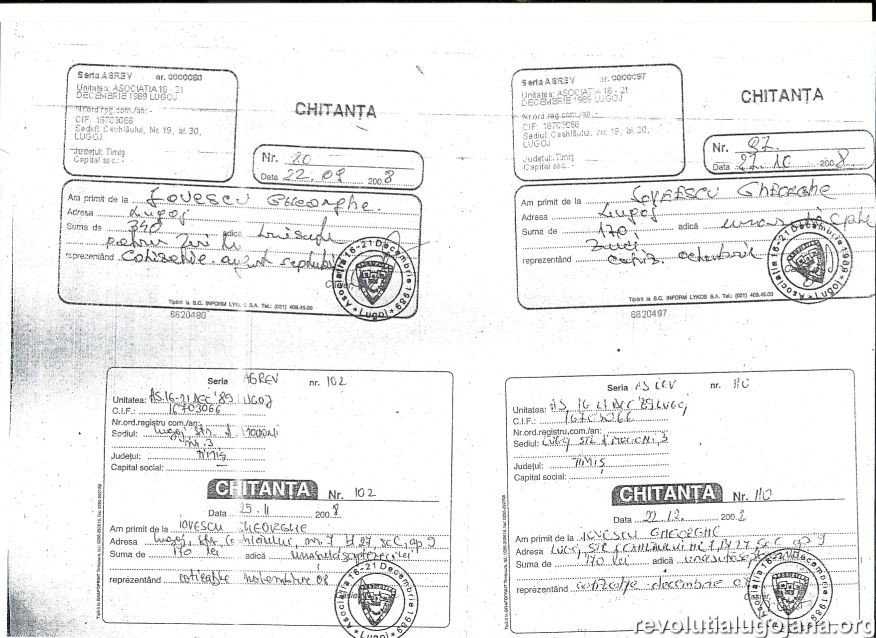 Seria ASREV nr. 0000080
Unitatea: ASOCIATIA 16 - 21
DECEMBRIE 1989 LUGOJ
Nr.ord.reg.com./an: -
CIF: 16703066
Sediul: Ceahlăului, Nr. 19, bl. 30,
LUGOJ
Judeţul: Timiş
Capital soc.: -
CHITANŢA
Nr. 80
Data 22.09 2008
Am primit de la Iovescu Gheorghe
Adresa Lugoj
Suma de 340 adică
reprezentând Cotisatie august septembrie
Casier,
Asociatia 16-21 Decembrie 1989 Lugoj
Tipărit la S.C. INFORM LYKOS S.A. Tel.: (021) 408.45.00
6620480
Seria ASREV nr. 0000097
Unitatea: ASOCIATIA 16 - 21
DECEMBRIE 1989 LUGOJ
Nr.ord.reg.com./an: -
CIF: 16703066
Sediul: Ceahlăului, Nr. 19, bl. 30,
LUGOJ
Judeţul: Timiş
Capital soc.: -
CHITANŢA
Nr. 97
Data 27.10 2008
Am primit de la Iovescu Gheorghe
Adresa Lugoj
Suma de 170 adică
reprezentând cotiz. octombrie
Casier,
Asociatia 16-21 Decembrie 1989 Lugoj
Tipărit la S.C. INFORM LYKOS S.A. Tel.: (021) 408.45.00
6620497
Seria ASREV nr. 102
Unitatea: AS.16-21 DEC '89 LUGOJ
C.I.F.: 16703066
Nr.ord.registru com./an:
Sediul: Lugoj Str. I Mocioni
nr. 3
Judeţul: TIMIŞ
Capital social: —
CHITANŢA Nr. 102
Data 25.11 2008
Am primit de la IOVESCU GHEORGHE
Adresa Lugoj, str. Ceahlaului, nr. 7, bl 27, sc C, ap 9
Suma de 170 lei adică unasutasaptezecilei
reprezentând cotizatie noiembrie 08
Casier,
Asociatia 16-21 Decembrie 1989 Lugoj
Seria ASREV nr. 110
Unitatea: AS. 16-21 DEC '89 LUGOJ
C.I.F.: 16703066
Nr.ord.registru com./an:
Sediul: LUGOJ STR I MOCIONI, 3
Judeţul: TIMIŞ
Capital social:
CHITANŢA Nr. 110
Data 22.12. 2008
Am primit de la IOVESCU GHEORGHE
Adresa LUGOJ, STR CEAHLAULUI NR 7, bl 27 SC C ap 9
Suma de 170 lei adică
reprezentând cotizatie decembrie
Casier,
Asociatia 16-21 Decembrie 1989 Lugoj
revolutialugojana.org